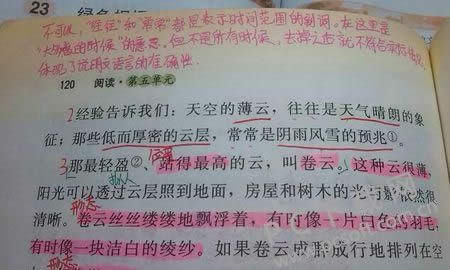 23
不可以，“往往”和“常常”都是表示时间范围的副词。在这里是
“大多数的时候”的意思。但不是所有时候，去掉之后就不符合实际情况
体现了说明文语言的准确性
120 阅读·第五单元
2经验告诉我们：天空的薄云，往往是天气晴朗的象
征；那些低而厚密的云层，常常是阴雨风雪的预兆①。
3那最轻盈②、站得最高的云，叫卷云。这种云很薄，
拟人
阳光可以透过云层照到地面，房屋和树木的光与影依然很
形态
清晰。卷云丝丝缕缕地飘浮着，有时像一片白色的羽毛，
有时像一块洁白的绫纱。如果卷云成群成行地排列在空
形态